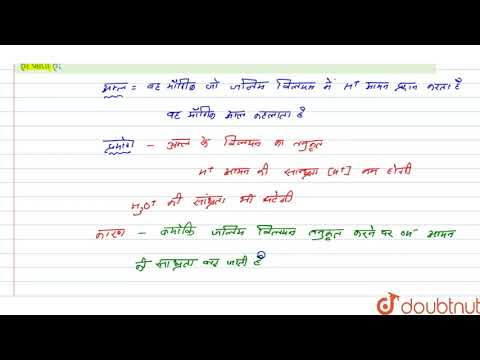 अम्ल = वह यौगिक जो जलिय विलयन में H⁺ आयन प्रदान करता है
वह यौगिक अम्ल कहलाता है
प्रयोग - अम्ल के विलयन का तनुकृत
H⁺ आयन की सान्द्रता [H⁺] कम होगी
H₃O⁺ की सांद्रता भी घटेगी
कारण - क्योंकि जलिय विलयन तनुकृत करने पर OH⁻ आयन
की सान्द्रता बढ़ जाती है
doubtnut